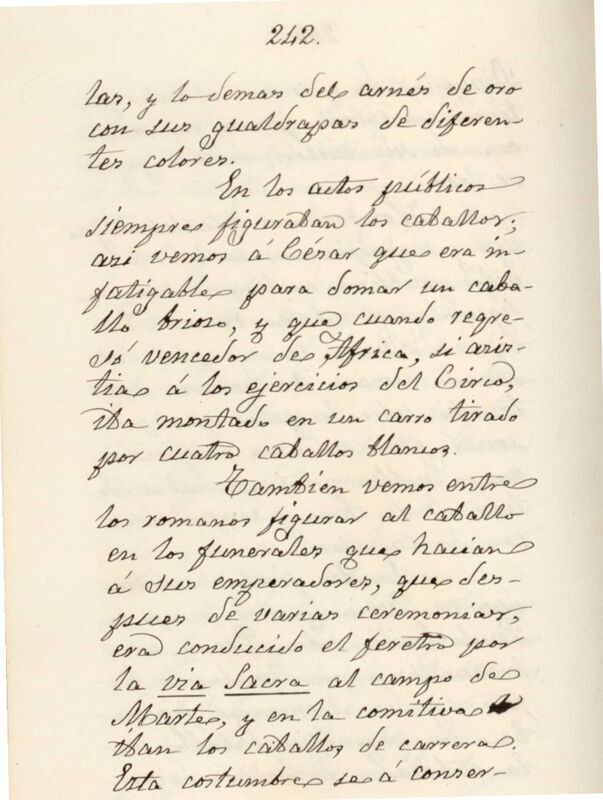 242.
las, y lo demas del arnés de oro
con sus gualdrapas de diferen-
tes colores.
En los actos públicos
siempre figuraban los caballos;
asi vemos á César que era in-
fatigable para domar un caba-
llo brioso, y que cuando regre-
só vencedor de Africa, si asis-
tia á los ejercicios del Circo,
iba montado en un carro tirado
por cuatro caballos blancos.
Tambien vemos entre
los romanos figurar al caballo
en los funerales que hacian
á sus emperadores, que des-
pues de varias ceremonias,
era conducido el feretro por
la via Sacra al campo de
Marte, y en la comitiva
iban los caballos de carrera.
Esta costumbre se á conser-